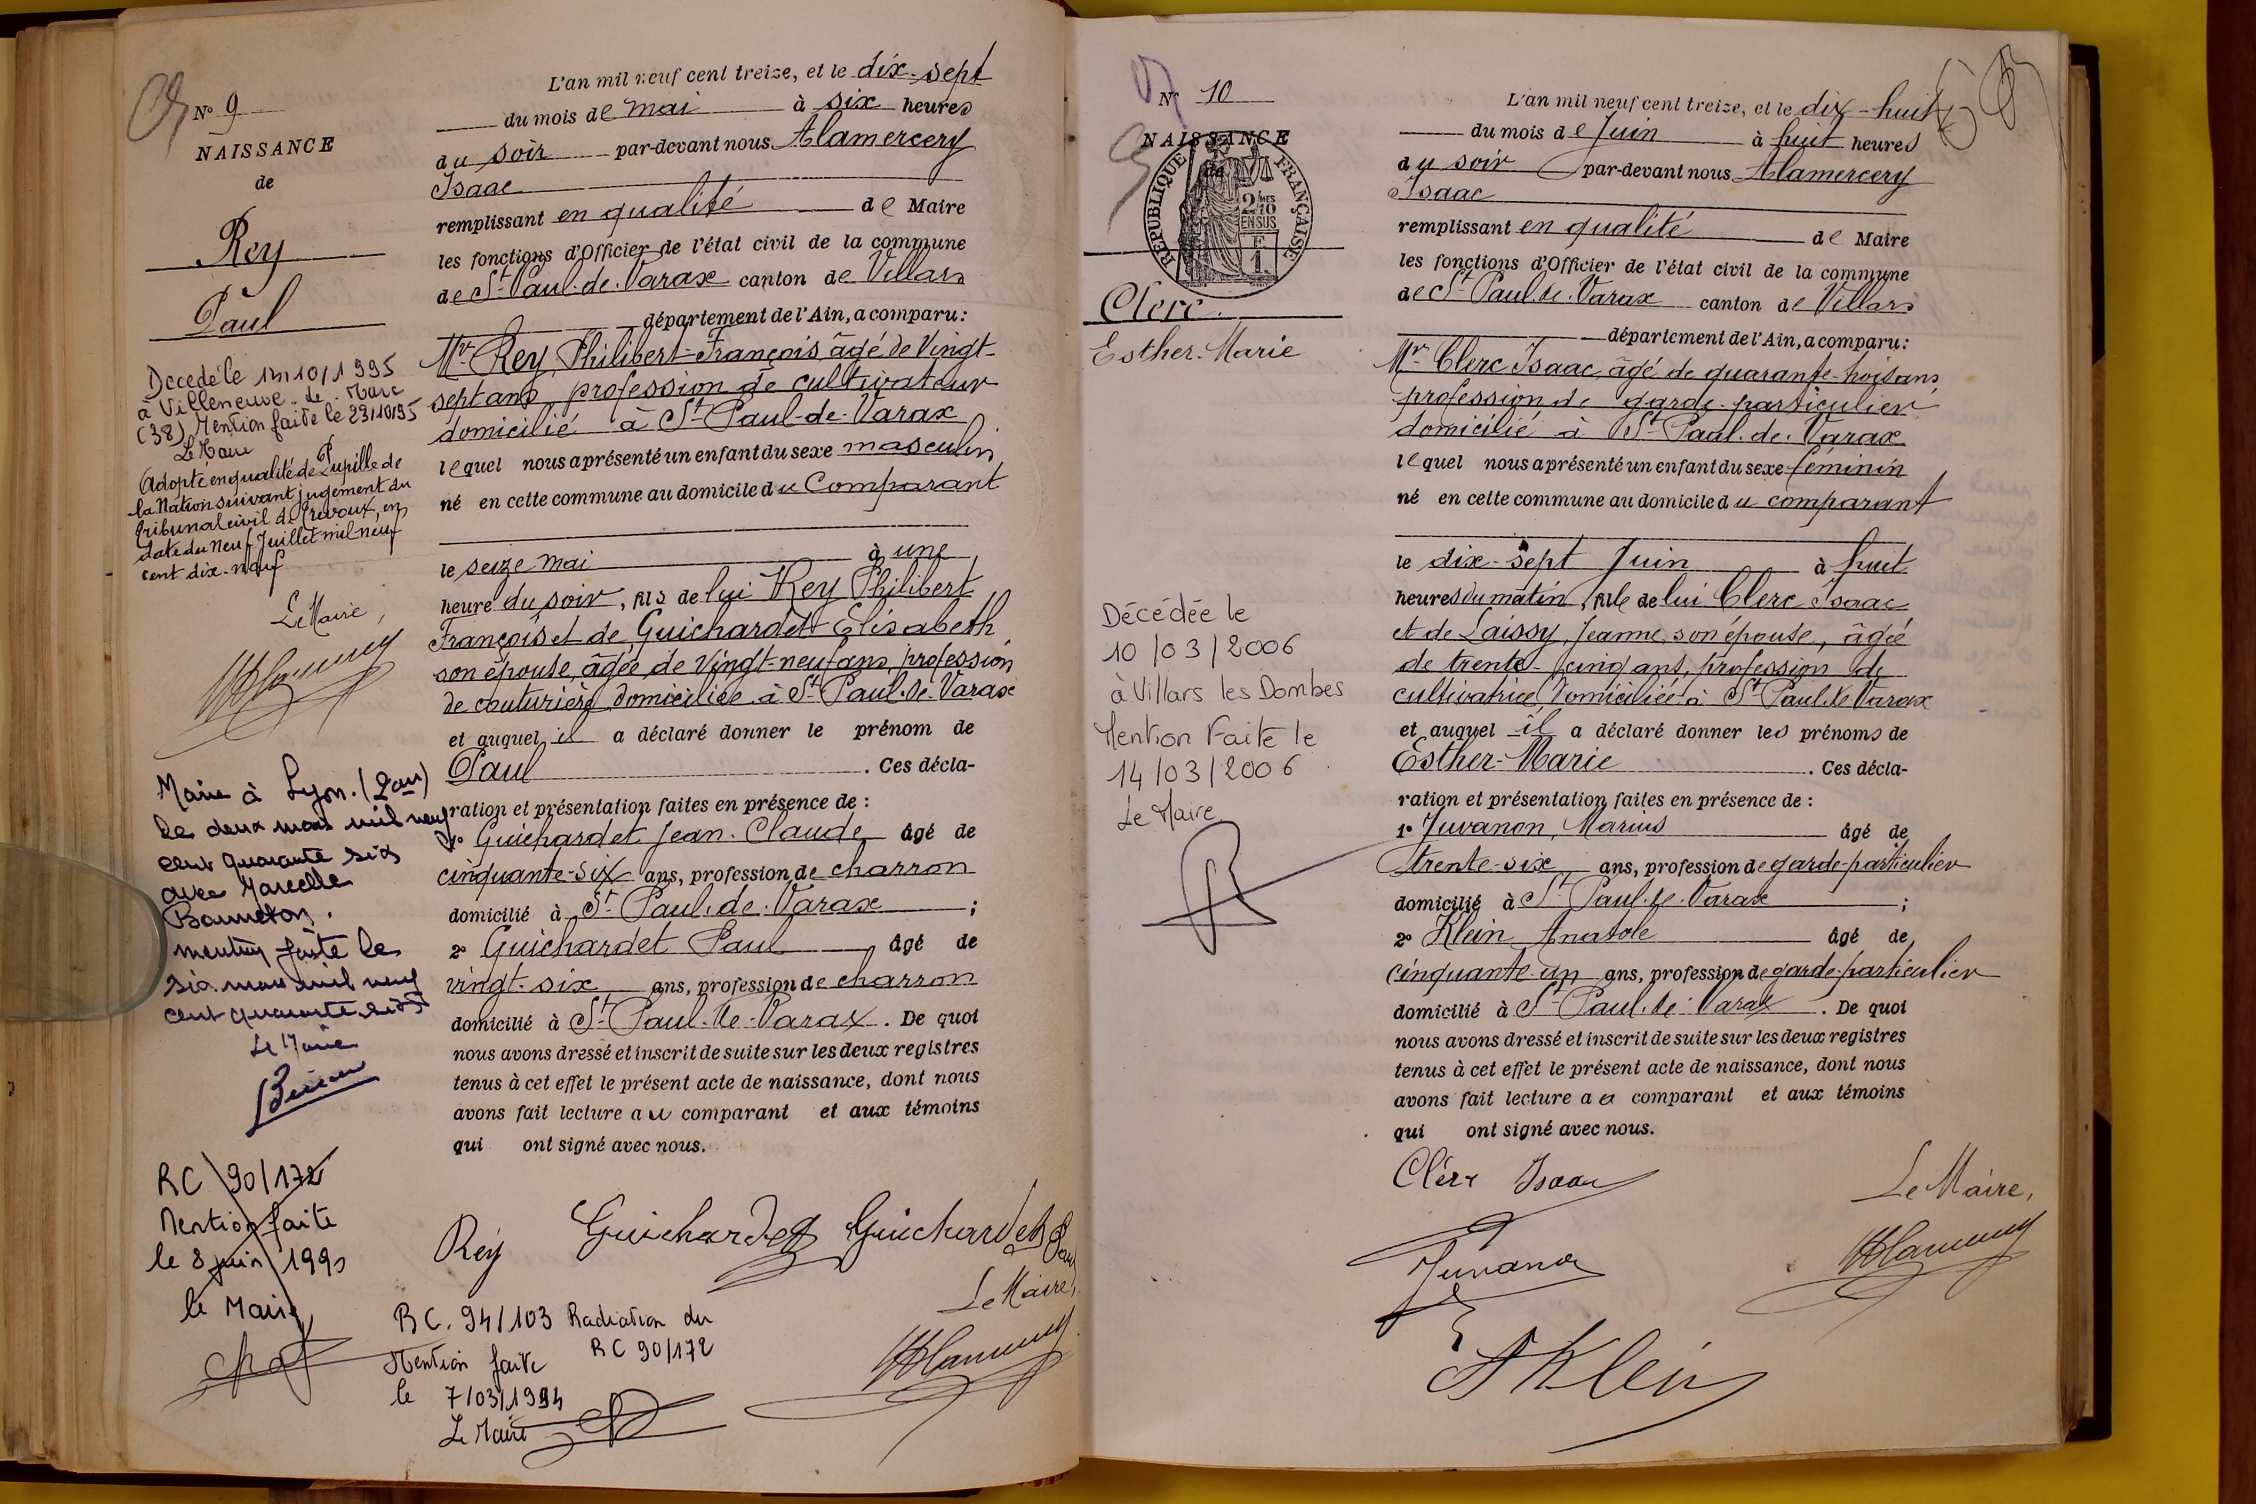 N° 9
NAISSANCE
de
Rey
Paul
Décédé le 10/1995
à Villeneuve-de-Marc
(38) Mention faite le 23/10/95
Le Maire
Adopté en qualité de Pupille de
la Nation suivant jugement du
Tribunal civil de Trévoux, en
date du Neuf Juillet mil neuf
cent dix-neuf
Le Maire,
Marié à Lyon. (2em)
le deux mars mil neuf
cent quarante six
avec Marcelle
mention faite le
six mars mil neuf
cent quarante six
Le Maire
RC 90/172
Mention faite
le 8 juin 1990
le Maire
L'an mil neuf cent treize, et le dix-sept
du mois de mai à six heures
du soir par-devant nous Alamercery
Isaac
remplissant en qualité de Maire
les fonctions d'Officier de l'état civil de la commune
de St-Paul-de-Varax canton de Villars
département de l'Ain, a comparu:
Mr Rey Philibert-François âgé de Vingt-
sept ans, profession de cultivateur
domicilié à St-Paul-de-Varax
lequel nous a présenté un enfant du sexe masculin
né en cette commune au domicile du Comparant
le seize mai à une
heure du soir, fils de lui Rey Philibert
François et de Guichardet Elisabeth
son épouse, âgée de Vingt-neuf ans, profession
de couturière domiciliée à St-Paul-de-Varax
et auquel il a déclaré donner le prénom de
Paul . Ces décla-
ration et présentation faites en présence de :
1° Guichardet Jean-Claude âgé de
cinquante-six ans, profession de charron
domicilié à St-Paul-de-Varax ;
2° Guichardet Paul âgé de
vingt-six ans, profession de charron
domicilié à St-Paul-de-Varax . De quoi
nous avons dressé et inscrit de suite sur les deux registres
tenus à cet effet le présent acte de naissance, dont nous
avons fait lecture au comparant et aux témoins
qui ont signé avec nous.
Rey Guichardet Guichardet Paul
Le Maire,
RC. 94/103 Radiation du
RC 90/172
Mention faite
le 7/03/1994
Le Maire
N° 10
NAISSANCE
de
RÉPUBLIQUE FRANÇAISE
2/10 EN SUS
Clerc.
Esther-Marie
Décédée le
10/03/2006
à Villars les Dombes
Mention Faite le
14/03/2006
Le Maire
L'an mil neuf cent treize, et le dix-huit
du mois de Juin à huit heures
du soir par-devant nous Alamercery
Isaac
remplissant en qualité de Maire
les fonctions d'Officier de l'état civil de la commune
de St-Paul-de-Varax canton de Villars
département de l'Ain, a comparu:
Mr Clerc Isaac, âgé de quarante-trois ans,
profession de garde-particulier
domicilié à St-Paul-de-Varax
lequel nous a présenté un enfant du sexe féminin
né en cette commune au domicile du comparant
le dix-sept Juin à huit
heures du matin, fille de lui Clerc Isaac
et de Laissy, Jeanne, son épouse, âgée
de trente-cinq ans, profession de
cultivatrice, domiciliée à St-Paul-de-Varax
et auquel il a déclaré donner les prénoms de
Esther-Marie . Ces décla-
ration et présentation faites en présence de :
1° Juvanon, Marius âgé de
trente-six ans, profession de garde-particulier
domicilié à St-Paul-de-Varax ;
2° Klein Anatole âgé de
cinquante-un ans, profession de garde-particulier
domicilié à St-Paul-de-Varax . De quoi
nous avons dressé et inscrit de suite sur les deux registres
tenus à cet effet le présent acte de naissance, dont nous
avons fait lecture au comparant et aux témoins
qui ont signé avec nous.
Clerc Isaac
Le Maire,
Juvanon
A Klein